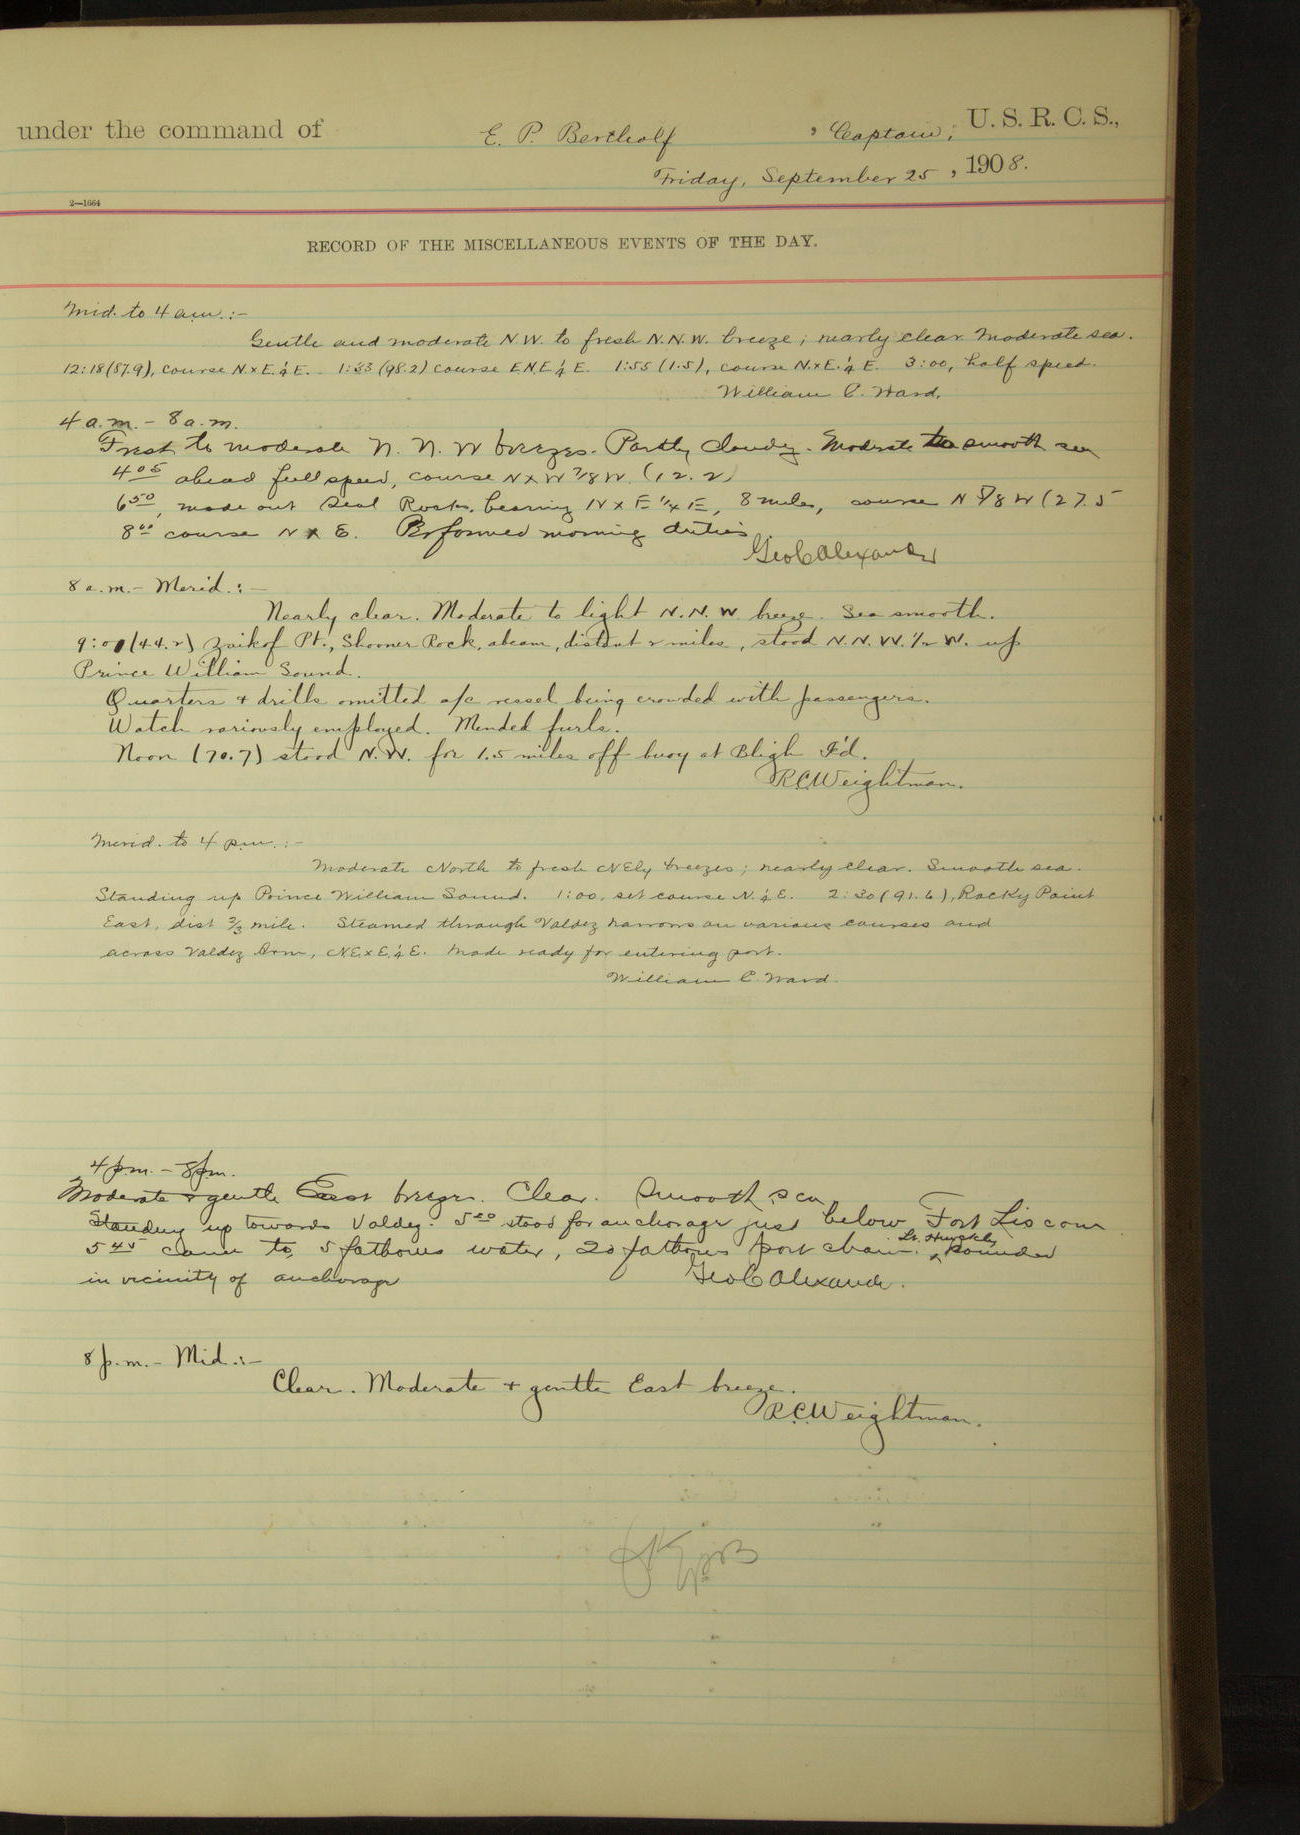 under the command of E. P. Bertholf, Captain, U. S. R. C. S.,
Friday, September 25, 1908.
2—1664
RECORD OF THE MISCELLANEOUS EVENTS OF THE DAY.
Mid. to 4 a.m.:-
Gentle and moderate N.W. to fresh N.N.W. breeze; nearly clear. Moderate sea.
12:18 (87.9), course N x E. ¼ E. 1:33 (98.2) course E.N.E ¼ E. 1:55 (1.5), course N. x E. ¼ E. 3:00, half speed.
William C. Ward.
4 a.m. - 8 a.m.
Fresh to moderate N. N. W breezes. Partly cloudy. Moderate to smooth sea
4 05 ahead full speed, course N x W 7/8 W. (12.2)
6 50, made out Seal Rocks, bearing N x E ¼ E, 8 miles, course N 7/8 W (27.5
8 00 course N x E. Performed morning duties.
Geo C Alexander
8 a.m. - Merid.:-
Nearly clear. Moderate to light N. N. W. breeze. Sea smooth.
9:00 (44.2) Zaikof Pt., Shooner Rock, abeam, distant 2 miles, stood N. N. W. ½ W. up
Prince William Sound.
Quarters + drills omitted a/c vessel being crowded with passengers.
Watch variously employed. Mended furls.
Noon (70.7) stood N. W. for 1.5 miles off buoy at Bligh I'd.
R.C. Weightman.
Merid. to 4 p.m.:-
Moderate North to fresh NEly breezes; nearly clear. Smooth sea.
Standing up Prince William Sound. 1:00, set course N. ¼ E. 2:30 (91.6), Rocky Point
East, dist ⅔ mile. Steamed through Valdez narrows on various courses and
across Valdez Arm, NE. x E. ¼ E. Made ready for entering port.
William C. Ward.
4 p.m. - 8 p.m.
Moderate + gentle East breezes. Clear. Smooth sea.
Standing up towards Valdez. 5 20 stood for anchorage just below Fort Liscom
5 45 came to, 5 fathoms water, 20 fathoms port chain. Lt. Hinckley sounded
in vicinity of anchorage
Geo C Alexander.
8 p.m. - Mid.:-
Clear. Moderate + gentle East breeze.
R.C. Weightman.